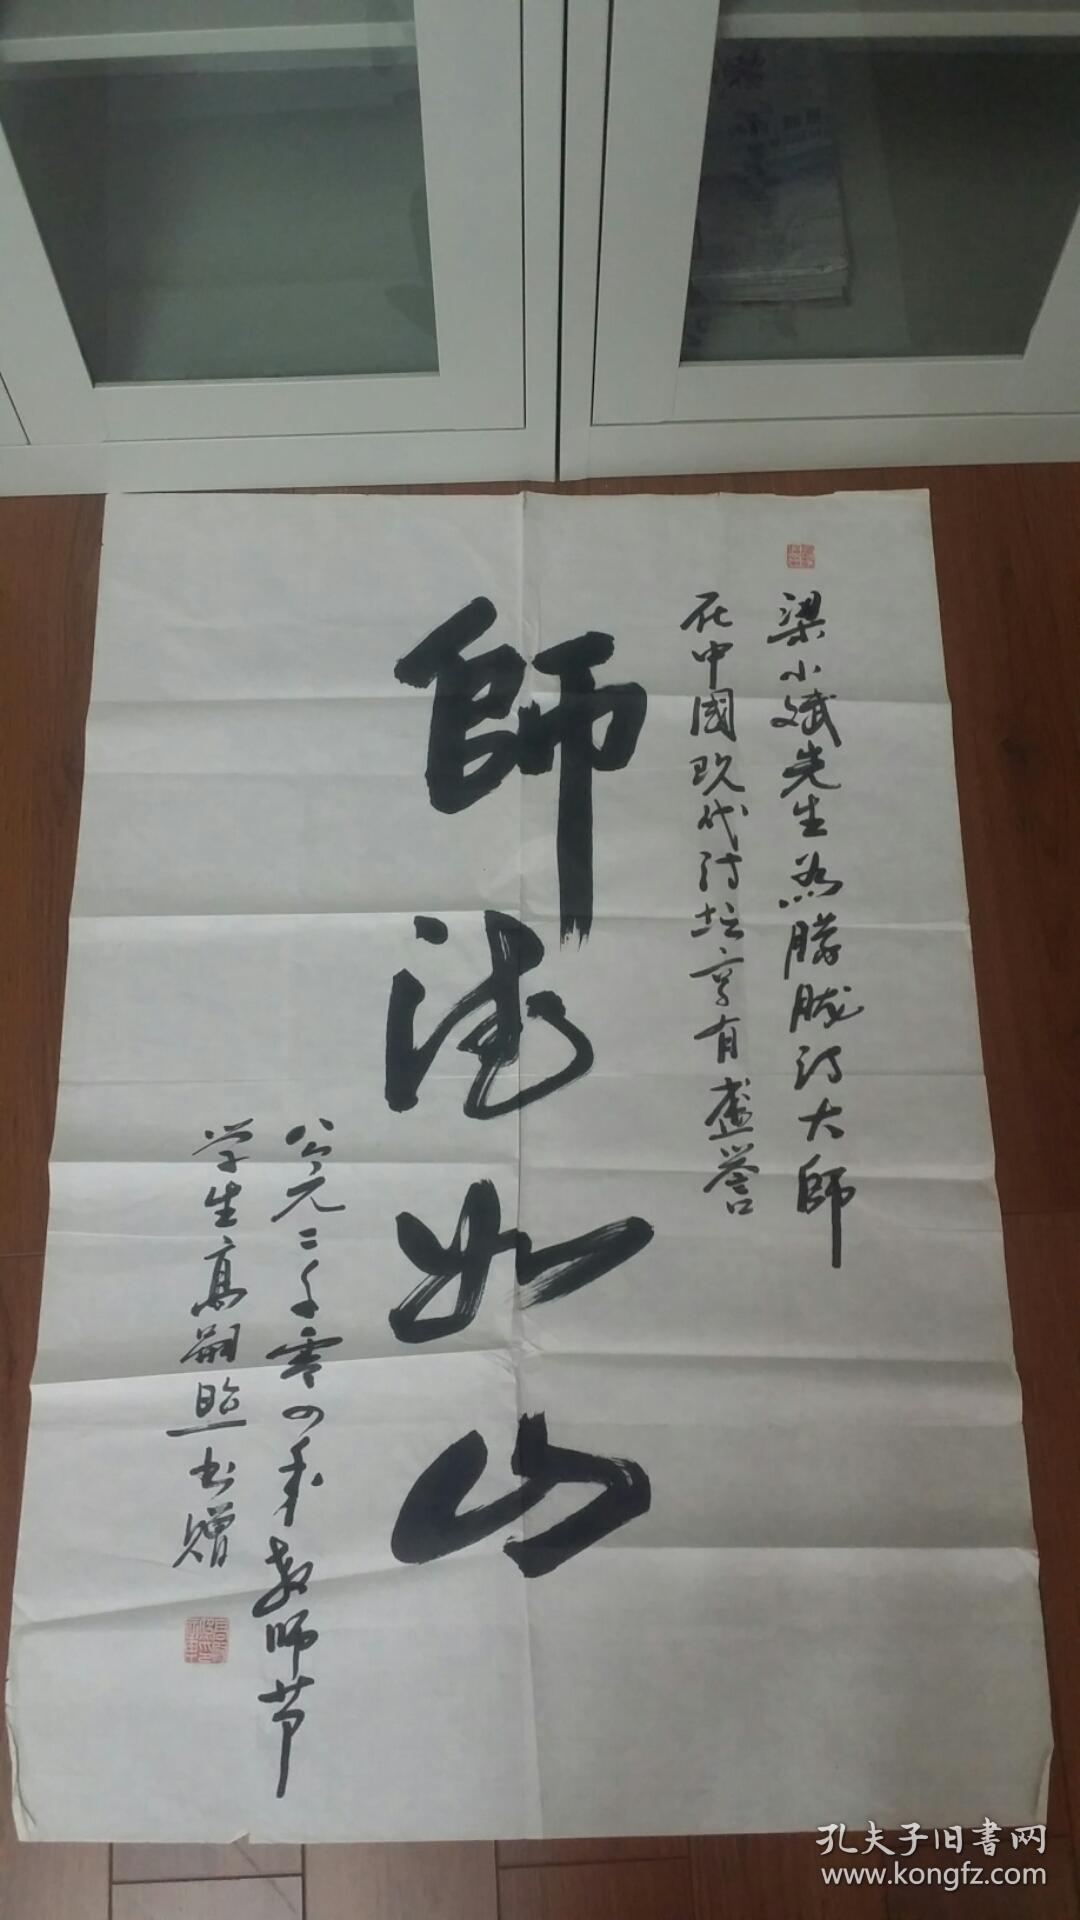 梁小斌先生为朦胧诗大師
在中國现代诗坛享有盛誉
師德如山
公元二千零四年教师节
学生高嗣照书赠
孔夫子旧書网
www.kongfz.com